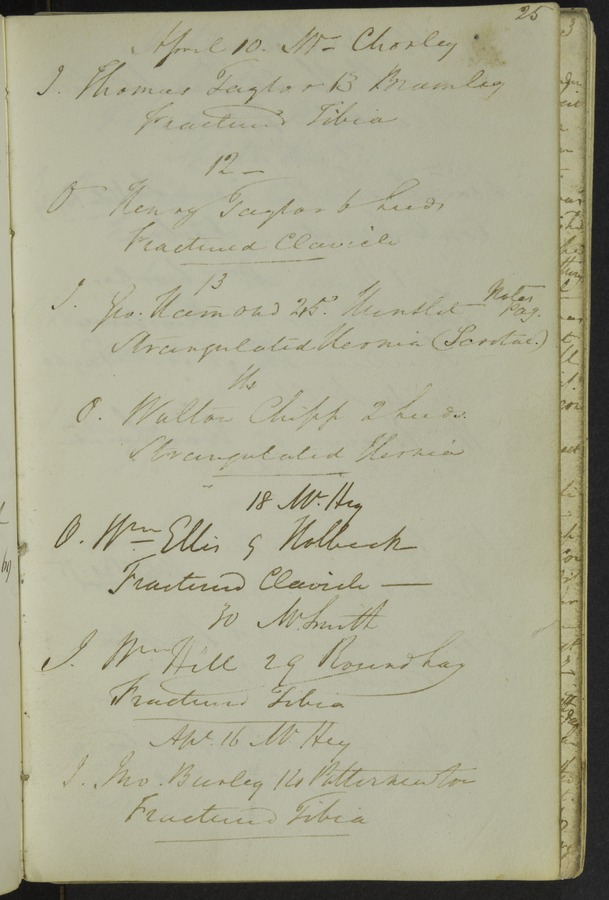 25
April 10. Mr Chorley
I. Thomas Taylor 13 Bramley
Fractured Tibia
12 –
O Henry Taylor 6 Leeds
Fractured Clavicle
13
I. Geo. Hamond 25. Hunslet Notes Pag.
Strangulated Hernia (Scrotal.)
O. Walton Chipp 2 Leeds.
Strangulated Hernia
18 Mr. Hey
O. Wm Ellis 9 Holbeck
Fractured Clavicle —
30 Mr Smith
I. Wm Hill 29 Roundhay
Fractured Tibia
Apl. 16 Mr Hey
I. Jno. Burley 14 Potternewton
Fractured Tibia